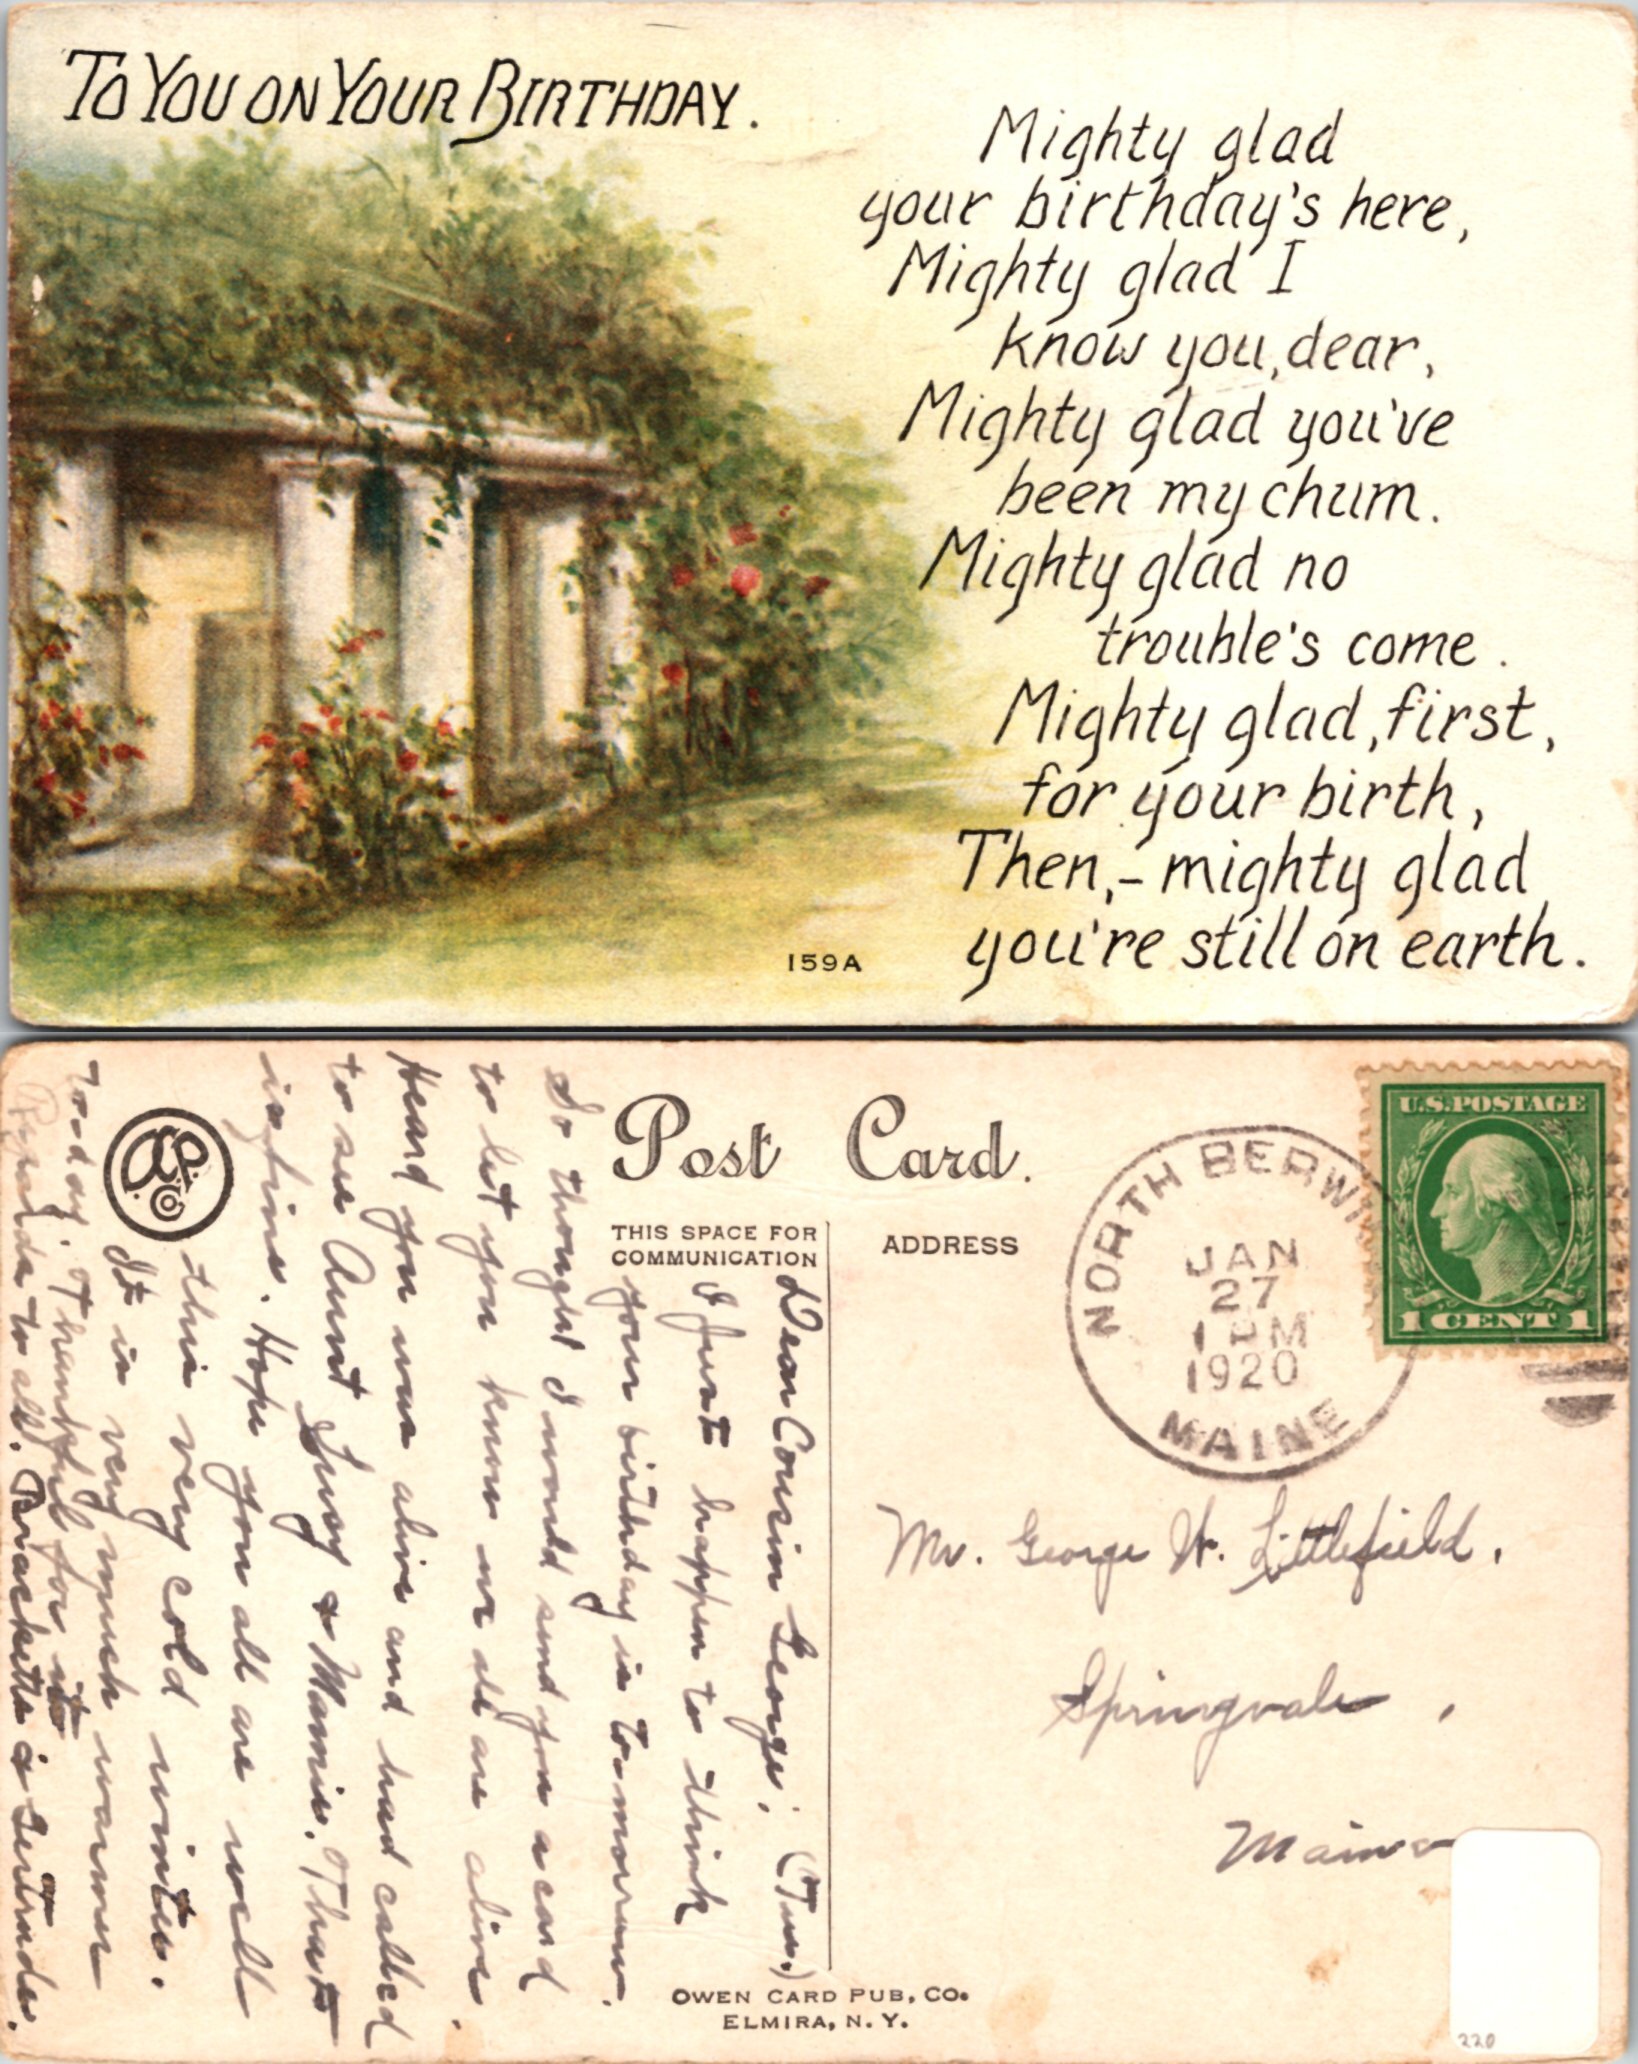 TO YOU ON YOUR BIRTHDAY.
Mighty glad
your birthday's here,
Mighty glad I
know you, dear,
Mighty glad you've
been my chum.
Mighty glad no
trouble's come.
Mighty glad, first,
for your birth,
Then,- mighty glad
you're still on earth.
159A
Post Card.
THIS SPACE FOR
COMMUNICATION
ADDRESS
NORTH BERWI
JAN
27
1 PM
1920
MAINE
U.S. POSTAGE
1 CENT 1
Mr. George H. Littlefield.
Springvale,
Maine
Dear Cousin George; (Tues.)
I Just happen to think
your birthday is to-morrow.
So thought I would send you a card
to let you know we all are alive.
Heard you was alive and had called
to see Aunt & Mamie. That
is fine. Hope you all are well
this very cold winter.
It is very much warmer
to-day. Thankful for it
Regards to all. Brackett & Gertrude.
OWEN CARD PUB. CO.
ELMIRA, N. Y.
220